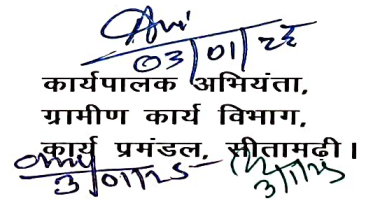 03/01/25
कार्यपालक अभियंता,
ग्रामीण कार्य विभाग,
कार्य प्रमंडल, सीतामढ़ी।
3/01/25
3/1/25